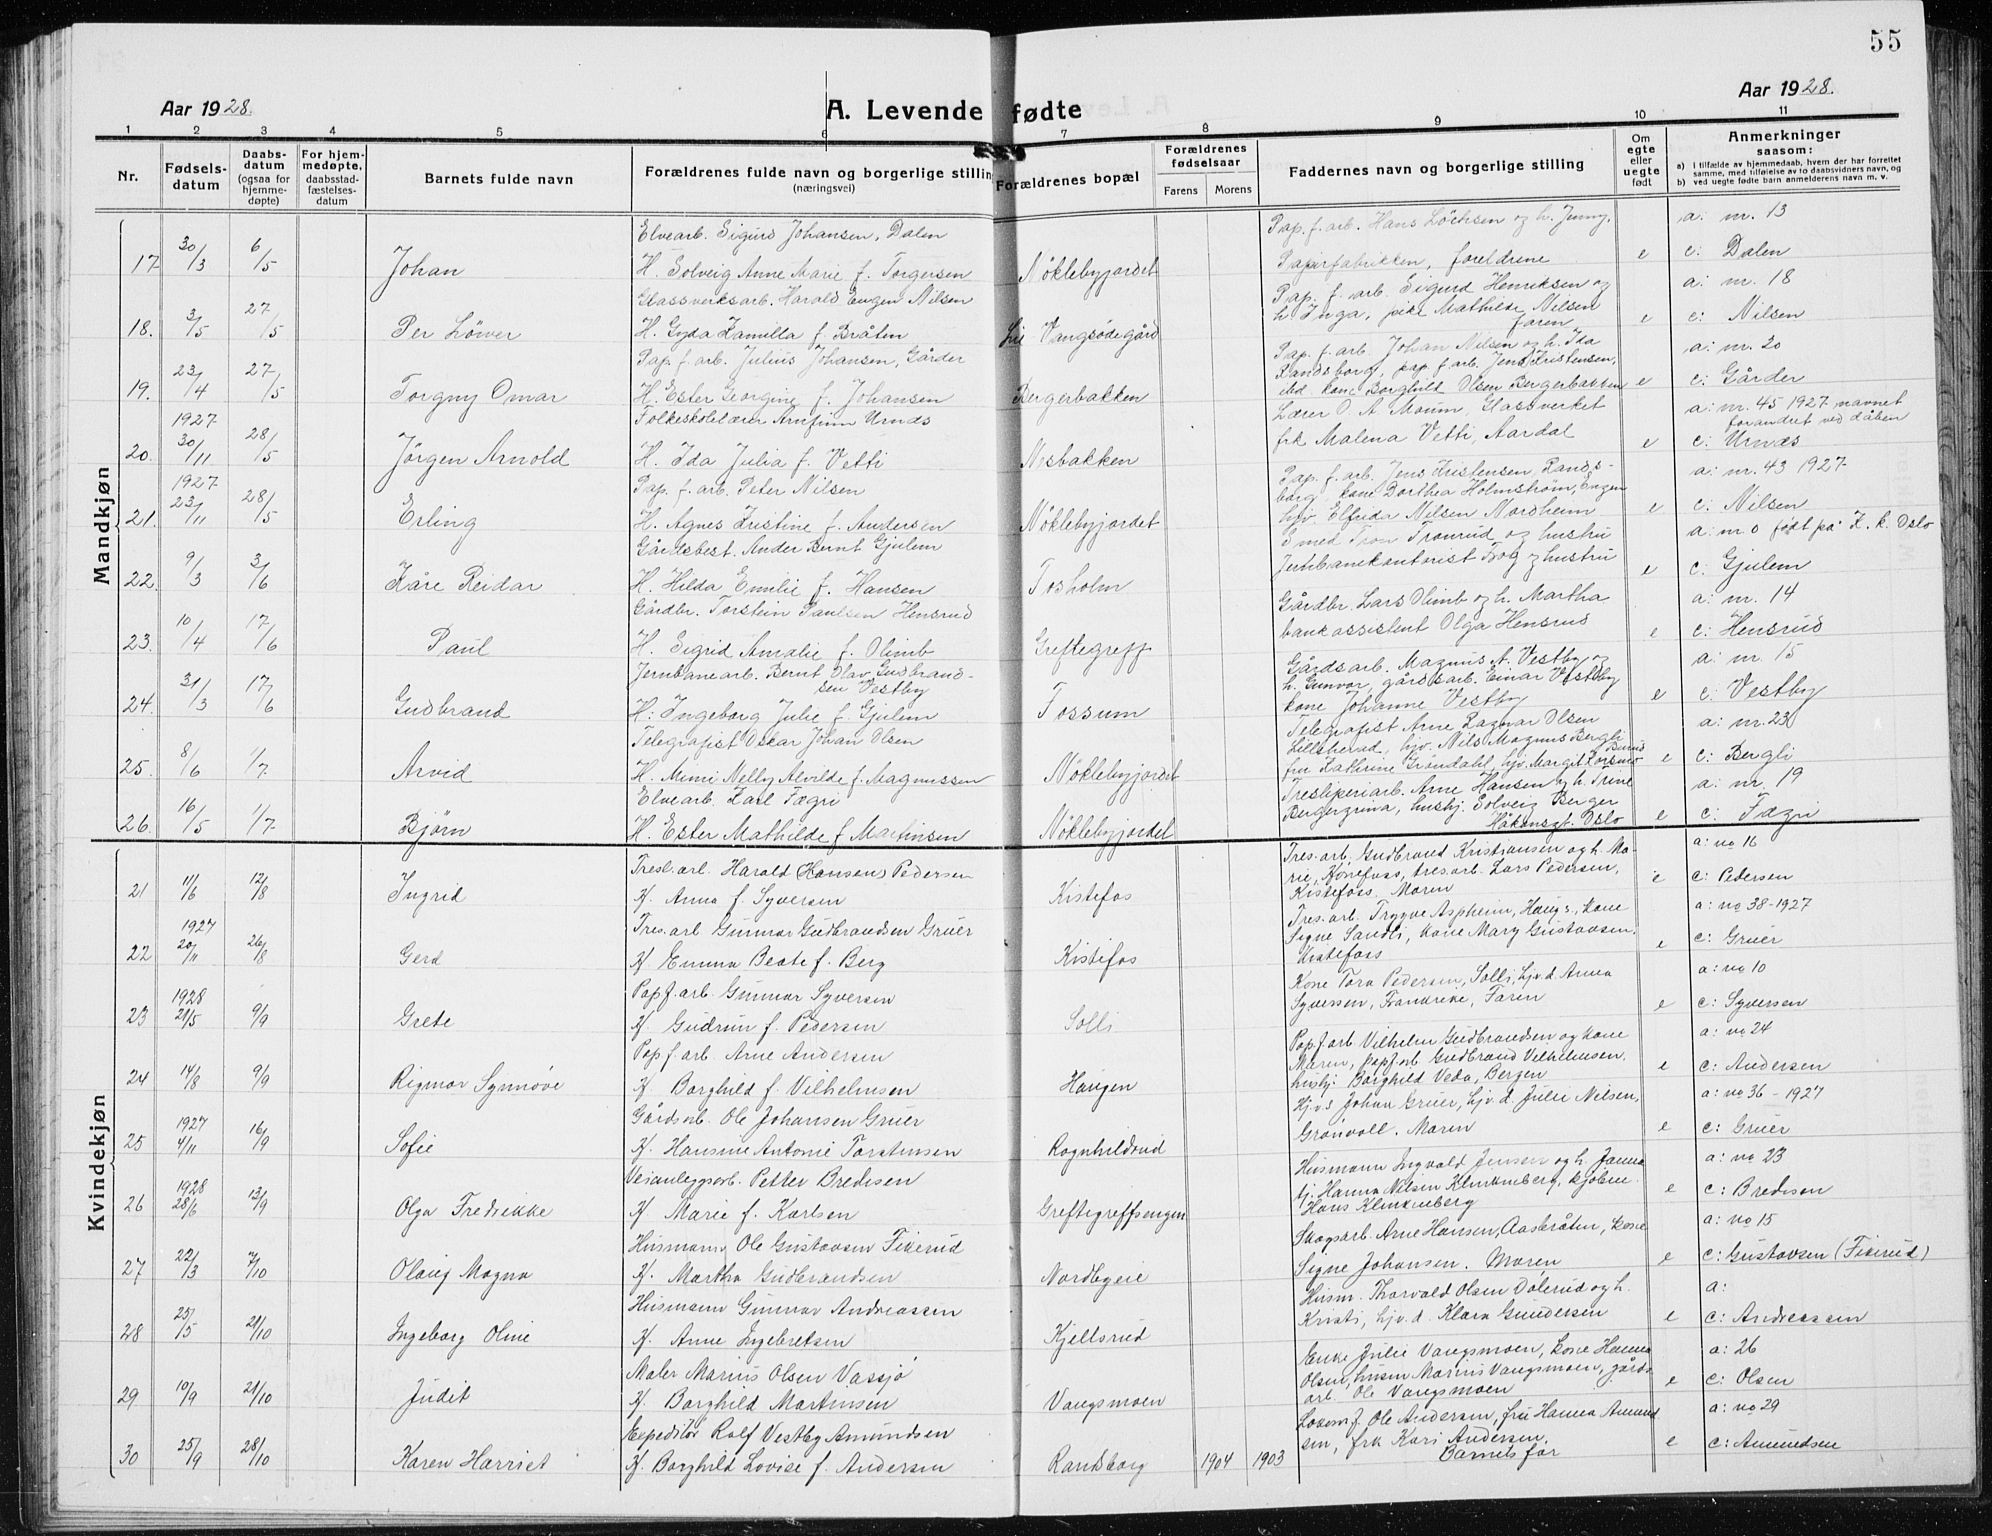 55
Aar 1928.
A. Levende fødte
Aar 1928.
1 2 3 4 5 6 7 8 9 10 11
Nr.
Fødsels-
datum
Daabs-
datum
(ogsaa for
hjemme-
døpte)
For hjem-
medøpte,
daabsstad-
fæstelses-
datum
Barnets fulde navn
Forældrenes fulde navn og borgerlige stilling
(næringsvei)
Forældrenes bopæl
Forældrenes
fødselsaar
Farens Morens
Faddernes navn og borgerlige stilling
Om
egte
eller
uegte
født
Anmerkninger
saasom:
a) I tilfælde av hjemmedaab, hvem der har forrettet
samme, med tilføielse av to daabsvidners navn, og
b) ved uegte fødte barn anmelderens navn m. v.
Mandkjøn
Elvearb. Sigurd Johansen, Dalen
Pap. f. arb. Hans Löchsen og h. Jenny,
a: nr. 13
17. 30/3 6/5 Johan H. Solveig Anne Marie f. Torgersen Nöklebyjordet Papirfabrikken, foreldrene e c: Dalen
Glassverksarb. Harald Engen Nilsen
Pap. f. arb. Sigurd Henriksen og
a: nr. 18
18. 3/5 27/5 Per Löwer H. Gyda Kamilla f. Bråten Lie Vangsödegård h. Inga, pike Mathilde Nilsen e c: Nilsen
faren
Pap. f. arb. Julius Johansen, Gårder
Pap. f. arb. Johan Nilsen og h. Ida
a: nr. 20
Randsborg, pap. f. arb. Jens Kristensen,
19. 23/4 27/5 Torgny Omar H. Ester Georgine f. Johansen Bergerbakken ibd. kone Borghild Olsen Bergerbakken e c: Gårder
1927 Folkeskolelærer Arnfinn Urnæs
Lærer O. A. Moum, Glassverket
a: nr. 45 1927 navnet
forandret ved dåben
20. 30/11 28/5 Jörgen Arnold H. Ida Julia f. Vetti Nesbakken frk Malena Vetti, Aardal e c: Urnæs
1927 Pap. f. arb. Peter Nilsen
Pap. f. arb. Jens Kristensen, Rands-
a: nr. 43 1927
borg, kone Dorthea Holmström, Engen
21. 23/11 28/5 Erling H. Agnes Kristine f. Andersen Nöklebyjordet hjv. Elfrida Nilsen Nordheim e c: Nilsen
Gårdsbest. Ander Bernt Gjulem
Smed Tron Tronrud og hustru
a: nr 0 født på K. k. Oslo
22. 9/3 3/6 Kåre Reidar H. Hilda Emilie f. Hansen Tosholm Jernbanekontorist Frog og hustru e c: Gjulem
Gårdbr. Torstein Paulsen Hensrud
Gårdbr. Lars Olimb og h. Martha
a: nr. 14
23. 10/4 17/6 Paul H. Sigrid Amalie f. Olimb Greftegreff bankassistent Olga Hensrud e c: Hensrud
Jernbanearb. Bernt Olav Gudbrand-
sen Vestby
Gårdsarb. Magnus A. Vestby og
a: nr. 15
h. Gunvor, gårdsarb. Einar Vestby
24. 31/3 17/6 Gudbrand H: Ingeborg Julie f. Gjulem Tossum kone Johanne Vestby e c: Vestby
Telegrafist Oskar Johan Olsen
Telegrafist Arne Ragnar Olsen
a: nr. 23
Lillehevad, hjv. Nils Magnus Bergli
25. 8/6 1/7 Arvid H. Mimi Nelly Alvilde f. Magnussen Nöklebyjordet fru Kathrine Gröndahl, hjv. Margit Korsmo e c: Bergli
Elvearb. Karl Fægri
Tresliperiarb. Arne Hansen og h. Trine
a: nr. 19
Bergergrina, hushj. Solveig Berger
26. 16/5 1/7 Björn H. Ester Mathilde f. Martinsen Nöklebyjordet Håkonsgt. Oslo e c: Fægri
Kvindekjøn
Tresl. arb. Harald (Hansen) Pedersen
Tres. arb. Gudbrand Kristiansen og h. Ma-
a: no 16
rie, Hönefoss, tres. arb. Lars Pedersen,
21 11/6 12/8 Ingrid H. Anna f. Syversen Kistefos Kistefoss. Moren e c: Pedersen
1927 Tres. arb Gunnar Gudbrandsen Gruer
Tres. arb. Trygve Aspheim, Haugs., kone
a: no 38-1927
Signe Sandli, kone Mary Gustavsen,
22 20/11 26/8 Gerd H. Emma Beate f. Berg Kistefos Kistefoss e c: Gruer
1928 Pap f. arb. Gunnar Syversen
Kone Tora Pedersen, Solli, hjv. d. Anna
a: no 10
23 21/5 9/9 Grete H. Gudrun f. Pedersen Solli Syversen, Trandreke, Faren e c: Syversen
Pap f. arb. Arne Andersen
Pap f. arb Vilhelm Gudbrandsen og kone
a: no 24
Maren, pap f. arb Gudbrand Vilhelmsen,
24 14/8 9/9 Rigmor Synnöve H. Borghild f. Vilhelmsen Haugen hushj. Borghild Veda, Bergen e c: Andersen
1927 Gårdsarb. Ole Johansen Gruer
Hjv. s Johan Gruer, hjv. d. Julie Nilsen,
a: no 36 - 1927
25 4/11 16/9 Sofie H. Hansine Antonie Torstensen Rognhildrud Grönvoll. Moren e c: Gruer
1928 Veianleggsarb. Petter Bredesen
Husmann Ingvald Jensen og h. Janna
a: no 23
tj. Hanna Nilsen Klinkenberg, skjölne
26 28/6 13/9 Olga Fredrikke H. Marie f. Karlsen Greftegreffsengen Hans Klinkenberg e c: Bredesen
Husmann Ole Gustavsen Fikerud
Skogsarb. Arne Hansen, Aasbråten, kone
a: no 15
27 22/3 7/10 Olaug Magna H. Martha Gudbrandsen Nordbyeie Signe Johansen. Moren e c: Gustavsen (Fikerud)
Husmann Gunnar Andreassen
Husm. Thorvald Olsen Dölerud og h.
a:
28 25/5 21/10 Ingeborg Oline H. Anne Ingebretsen Kjellsrud Kristi, hjv. d. Klara Gundersen e c: Andreassen
Maler Marius Olsen Vassjö
Enke Julie Vangsmoen, kone Hanna
a: 26
Olsen, husm Marius Vangsmoen, gårds
29 10/9 21/10 Judit H. Borghild Martinsen Vangsmoen arb. Ole Vangsmoen e c: Olsen
Expeditör Rolf Vestby Amundsen
Lokomf. Ole Andersen, fru Hanna Amund
a: no 29
sen, frk Kari Andersen,
30 25/9 28/10 Karen Harriet H. Borghild Lovise f. Andersen Randsborg 1904 1903 Barnets far e c: Amundsen